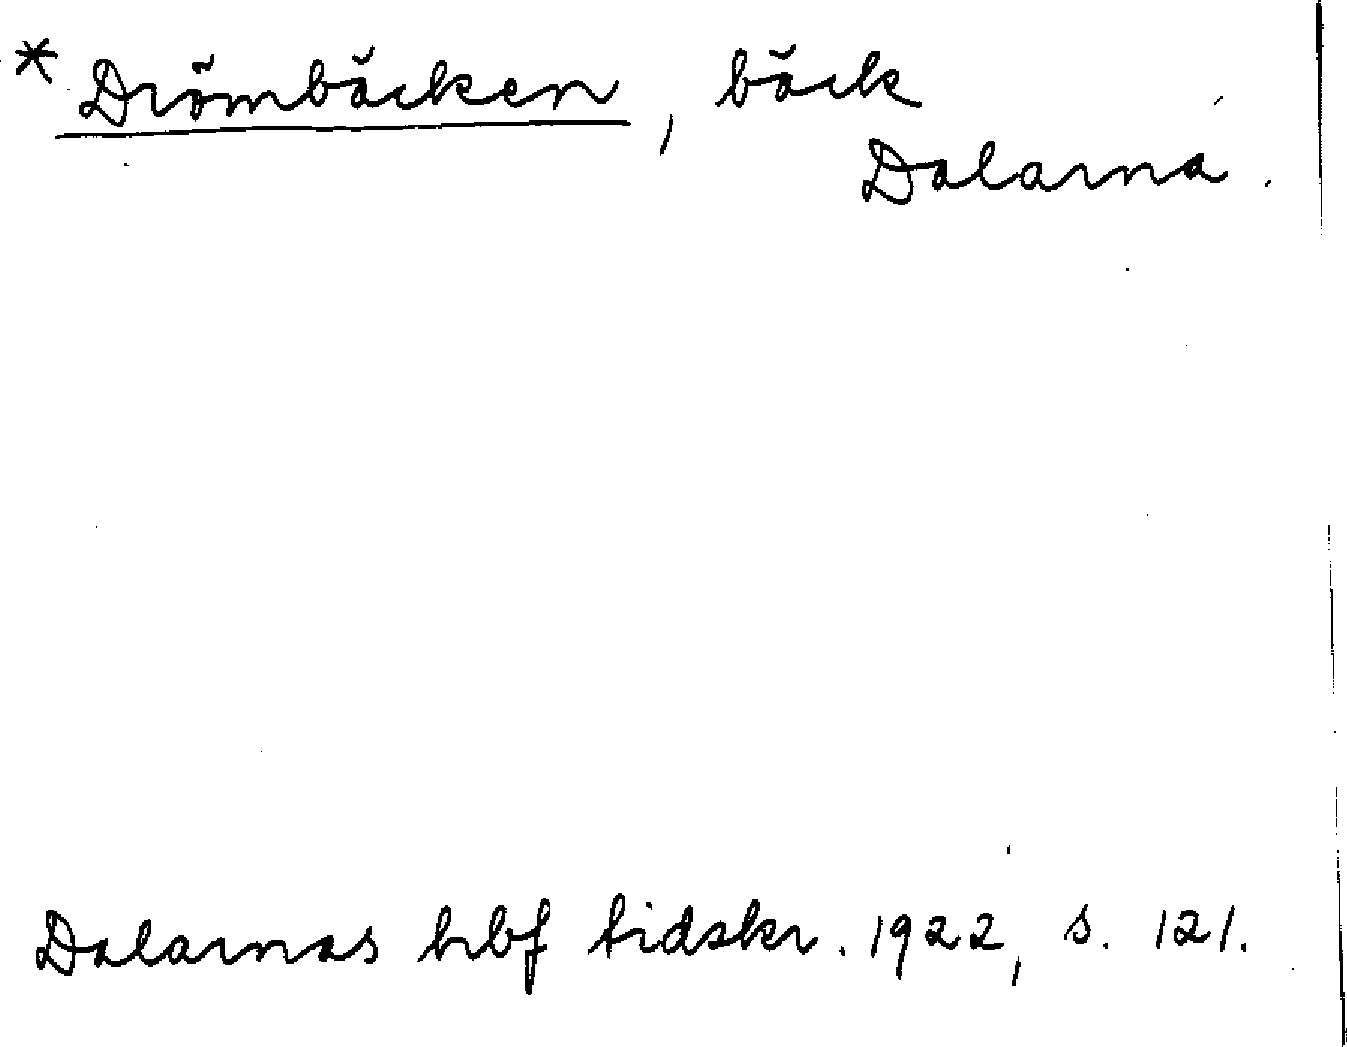 * Drömbäcken, bäck
Dalarna.
Dalarnas hbf tidskr. 1922, s. 121.